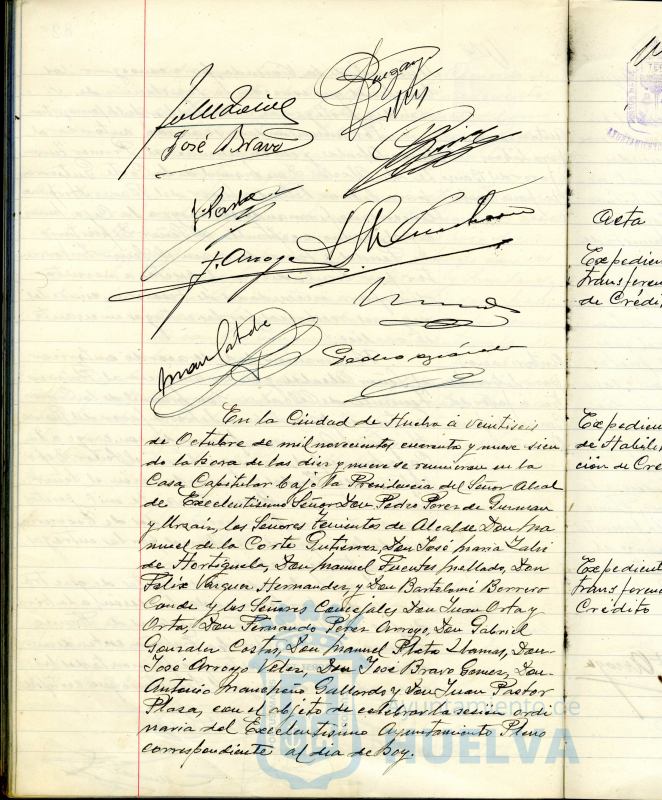 José Bravo
J. Pastor
J. Arroyo
En la Ciudad de Huelva á veintiseis
de Octubre de mil novecientos cuarenta y nueve sien
do la hora de las diez y nueve se reunieron en la
Casa Capitular bajo la Presidencia del Señor Alcal
de Excelentisimo Señor Don Pedro Perez de Guzman
y Urzaiz, los Señores tenientes de Alcalde Don Ma
nuel de la Corte Gutierrez, Don José Maria
de Hortiguela, Don Manuel Fuentes Mellado, Don
Felix Vazquez Hernandez, y Don Bartolomé Borrero
Conde y los Señores Concejales Don Juan Orta y
Orta, Don Fernando Perez Arroyo, Don Gabriel
Gonzalez Costas, Don Manuel Plata Llamas, Don
José Arroyo Velez, Don José Bravo Gomez, Don
Antonio Gallardo y Don Juan Pastor
Plaza, con el objeto de celebrar la sesion ordi
naria del Excelentisimo Ayuntamiento Pleno
correspondiente al dia de hoy.
Ayuntamiento de
HUELVA
Acta
Expedien
transferen
de Crédi
Expedien
de Habili
ción de Cré
Expedient
transferenc
Crédito